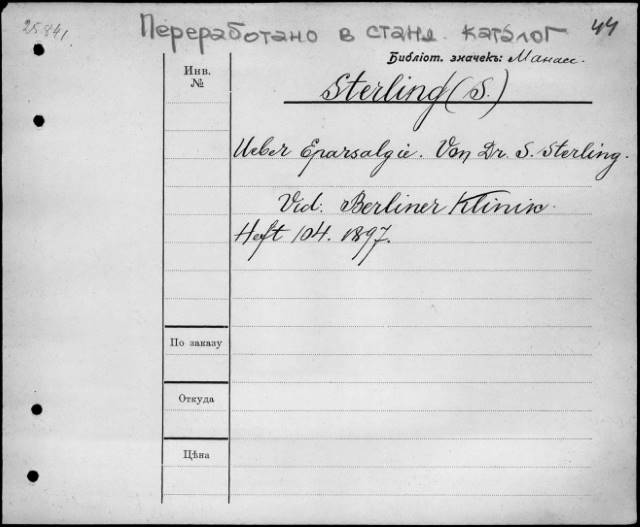 25841
Переработано в станд. каталог 44
Библіот. значекъ: Манасс.
Инв.
№
Sterling (S.)
Ueber Eparsalgie. Von Dr. S. Sterling.
Vid. Berliner Klinik.
Heft 104. 1897.
По заказу
Откуда
Цѣна